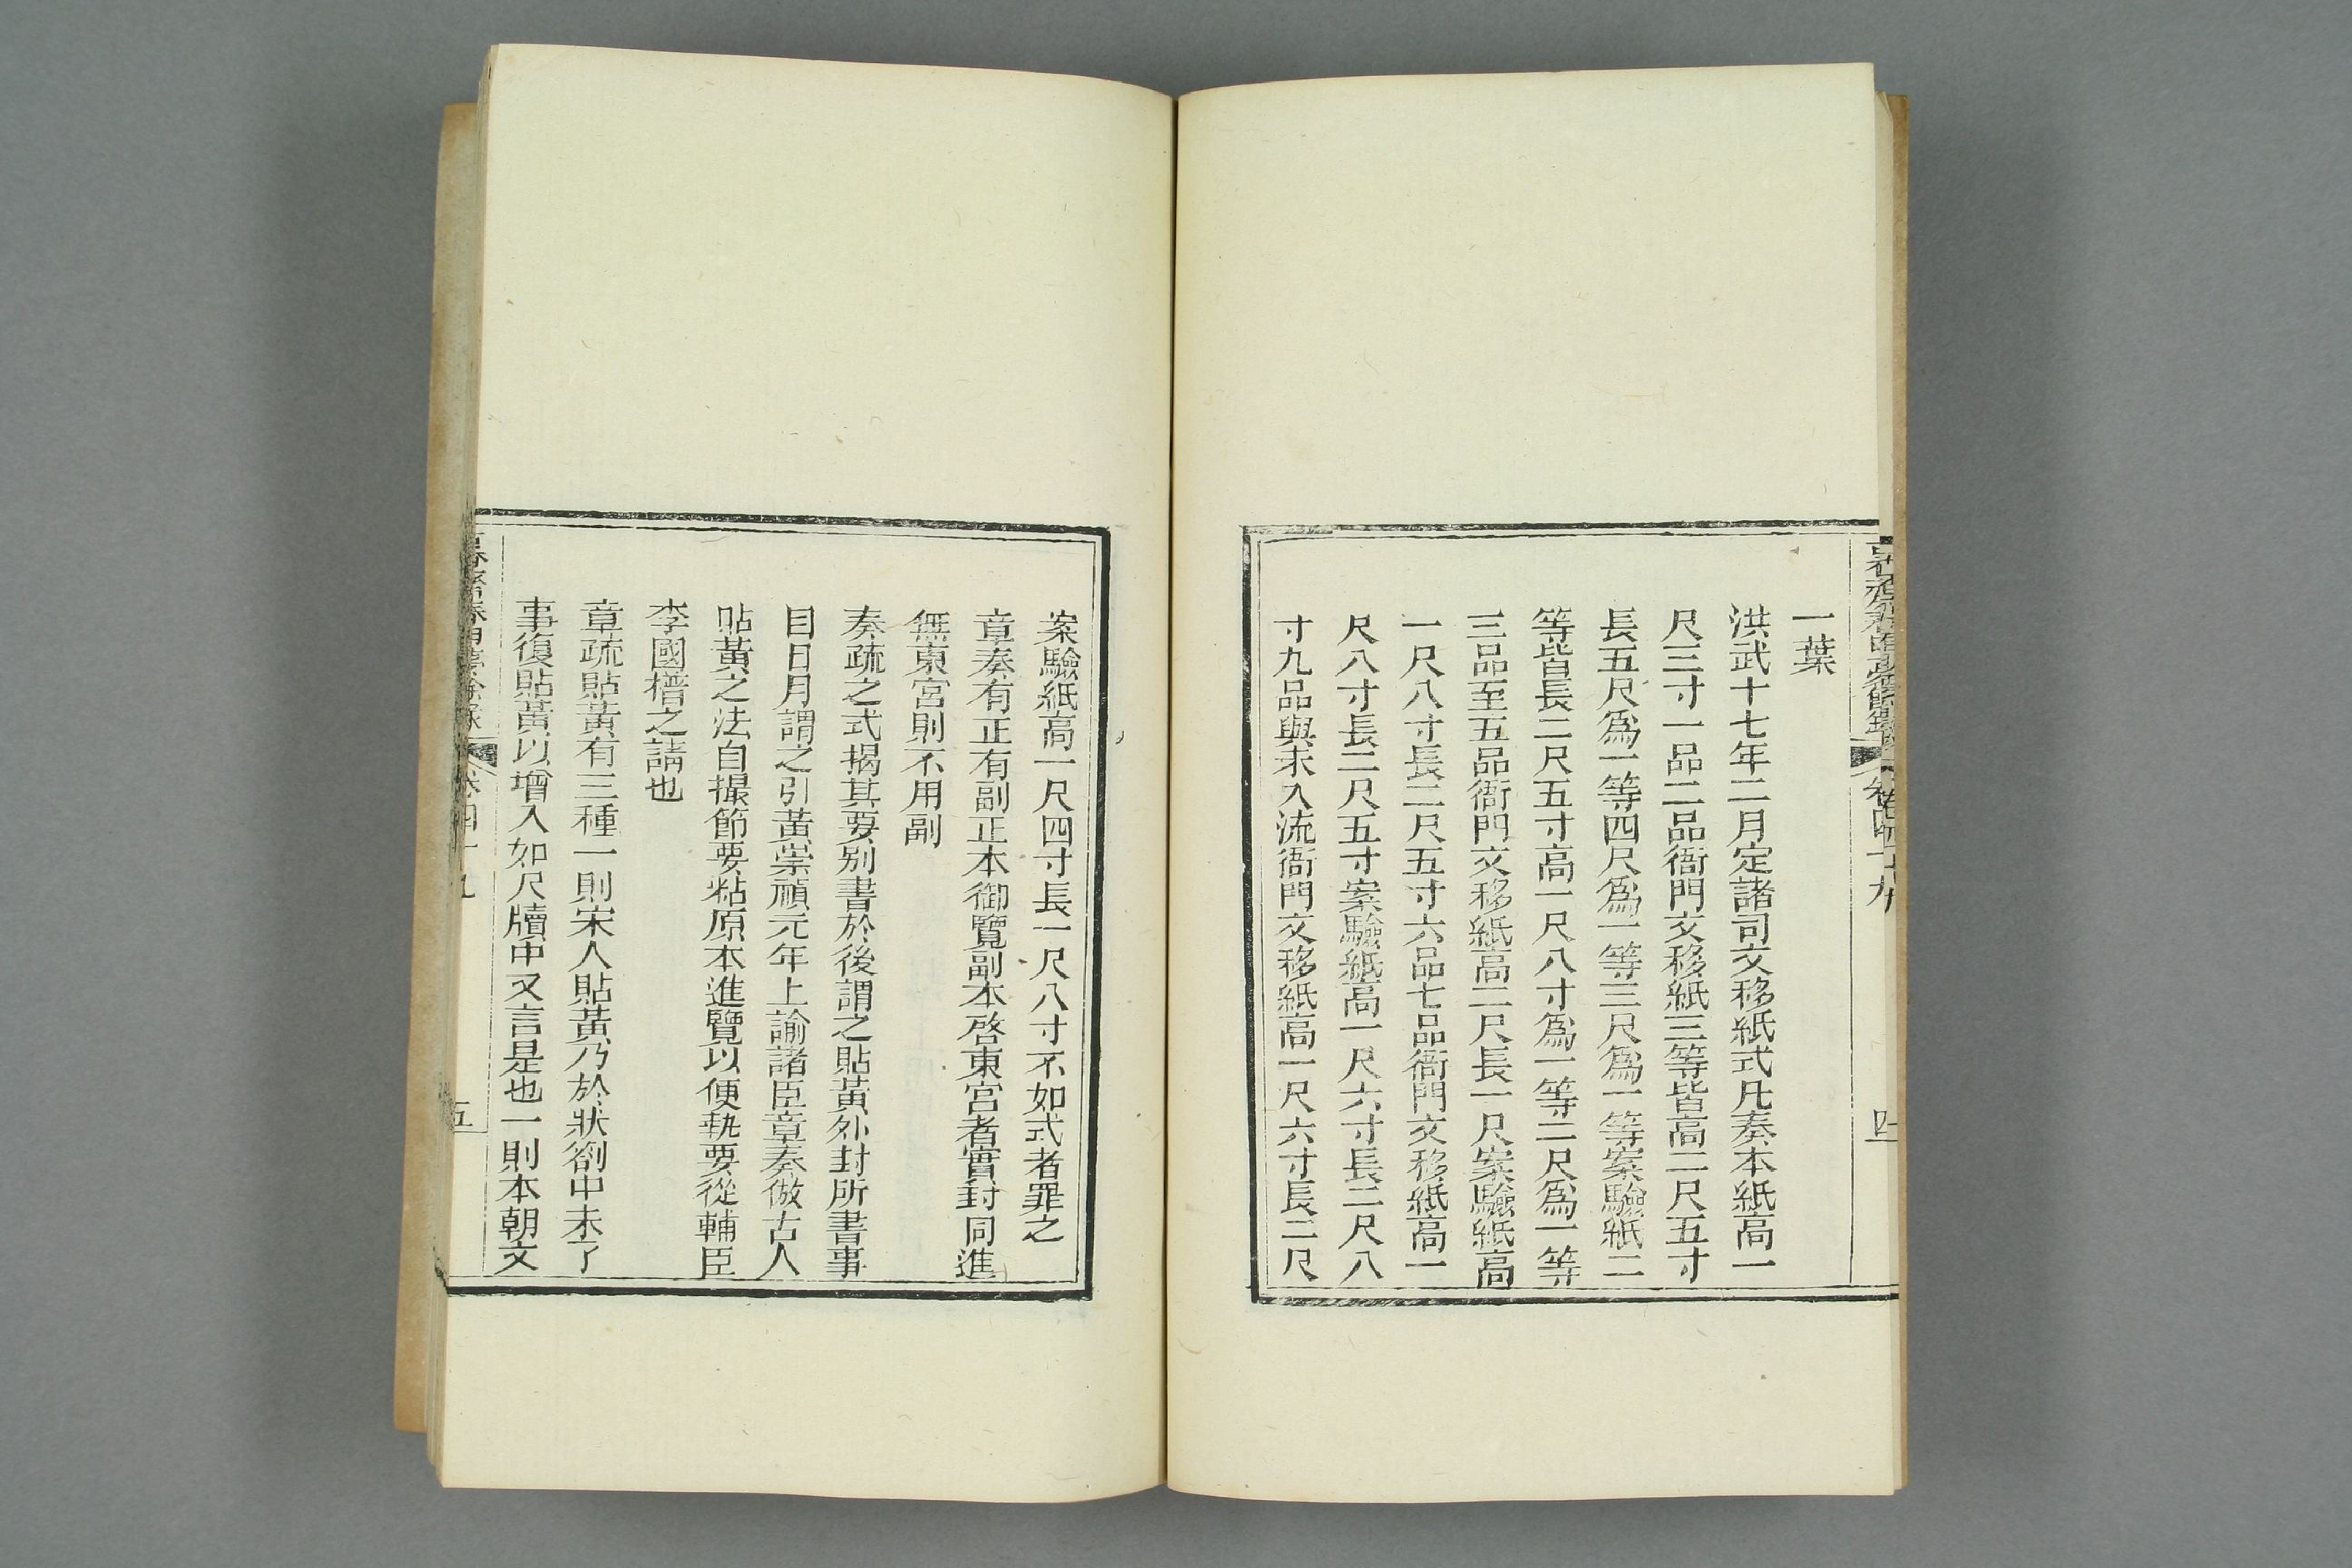 一葉
洪武十七年二月定諸司文移紙式凡奏本紙高一
尺三寸一品二品衙門文移紙三等皆高二尺五寸
長五尺爲一等四尺爲一等三尺爲一等案驗紙二
等皆長二尺五寸高一尺八寸爲一等二尺爲一等
三品至五品衙門文移紙高二尺長一尺案驗紙高
一尺八寸長二尺五寸六品七品衙門文移紙高一
尺八寸長二尺五寸案驗紙高一尺六寸長二尺八
寸九品與未入流衙門文移紙高一尺六寸長二尺
案驗紙高一尺四寸長一尺八寸不如式者罪之
章奏有正有副正本御覽副本啓東宮者實封同進
無東宮則不用副
奏疏之式揭其要别書於後謂之貼黃外封所書事
目日月謂之引黃崇禎元年上諭諸臣章奏倣古人
貼黃之法自撮節要粘原本進覽以便執要從輔臣
李國𣚴之請也
章疏貼黃有三種一則宋人貼黃乃於狀劄中未了
事復貼黃以增入如尺牘中又言是也一則本朝文
卷四十九
四
五